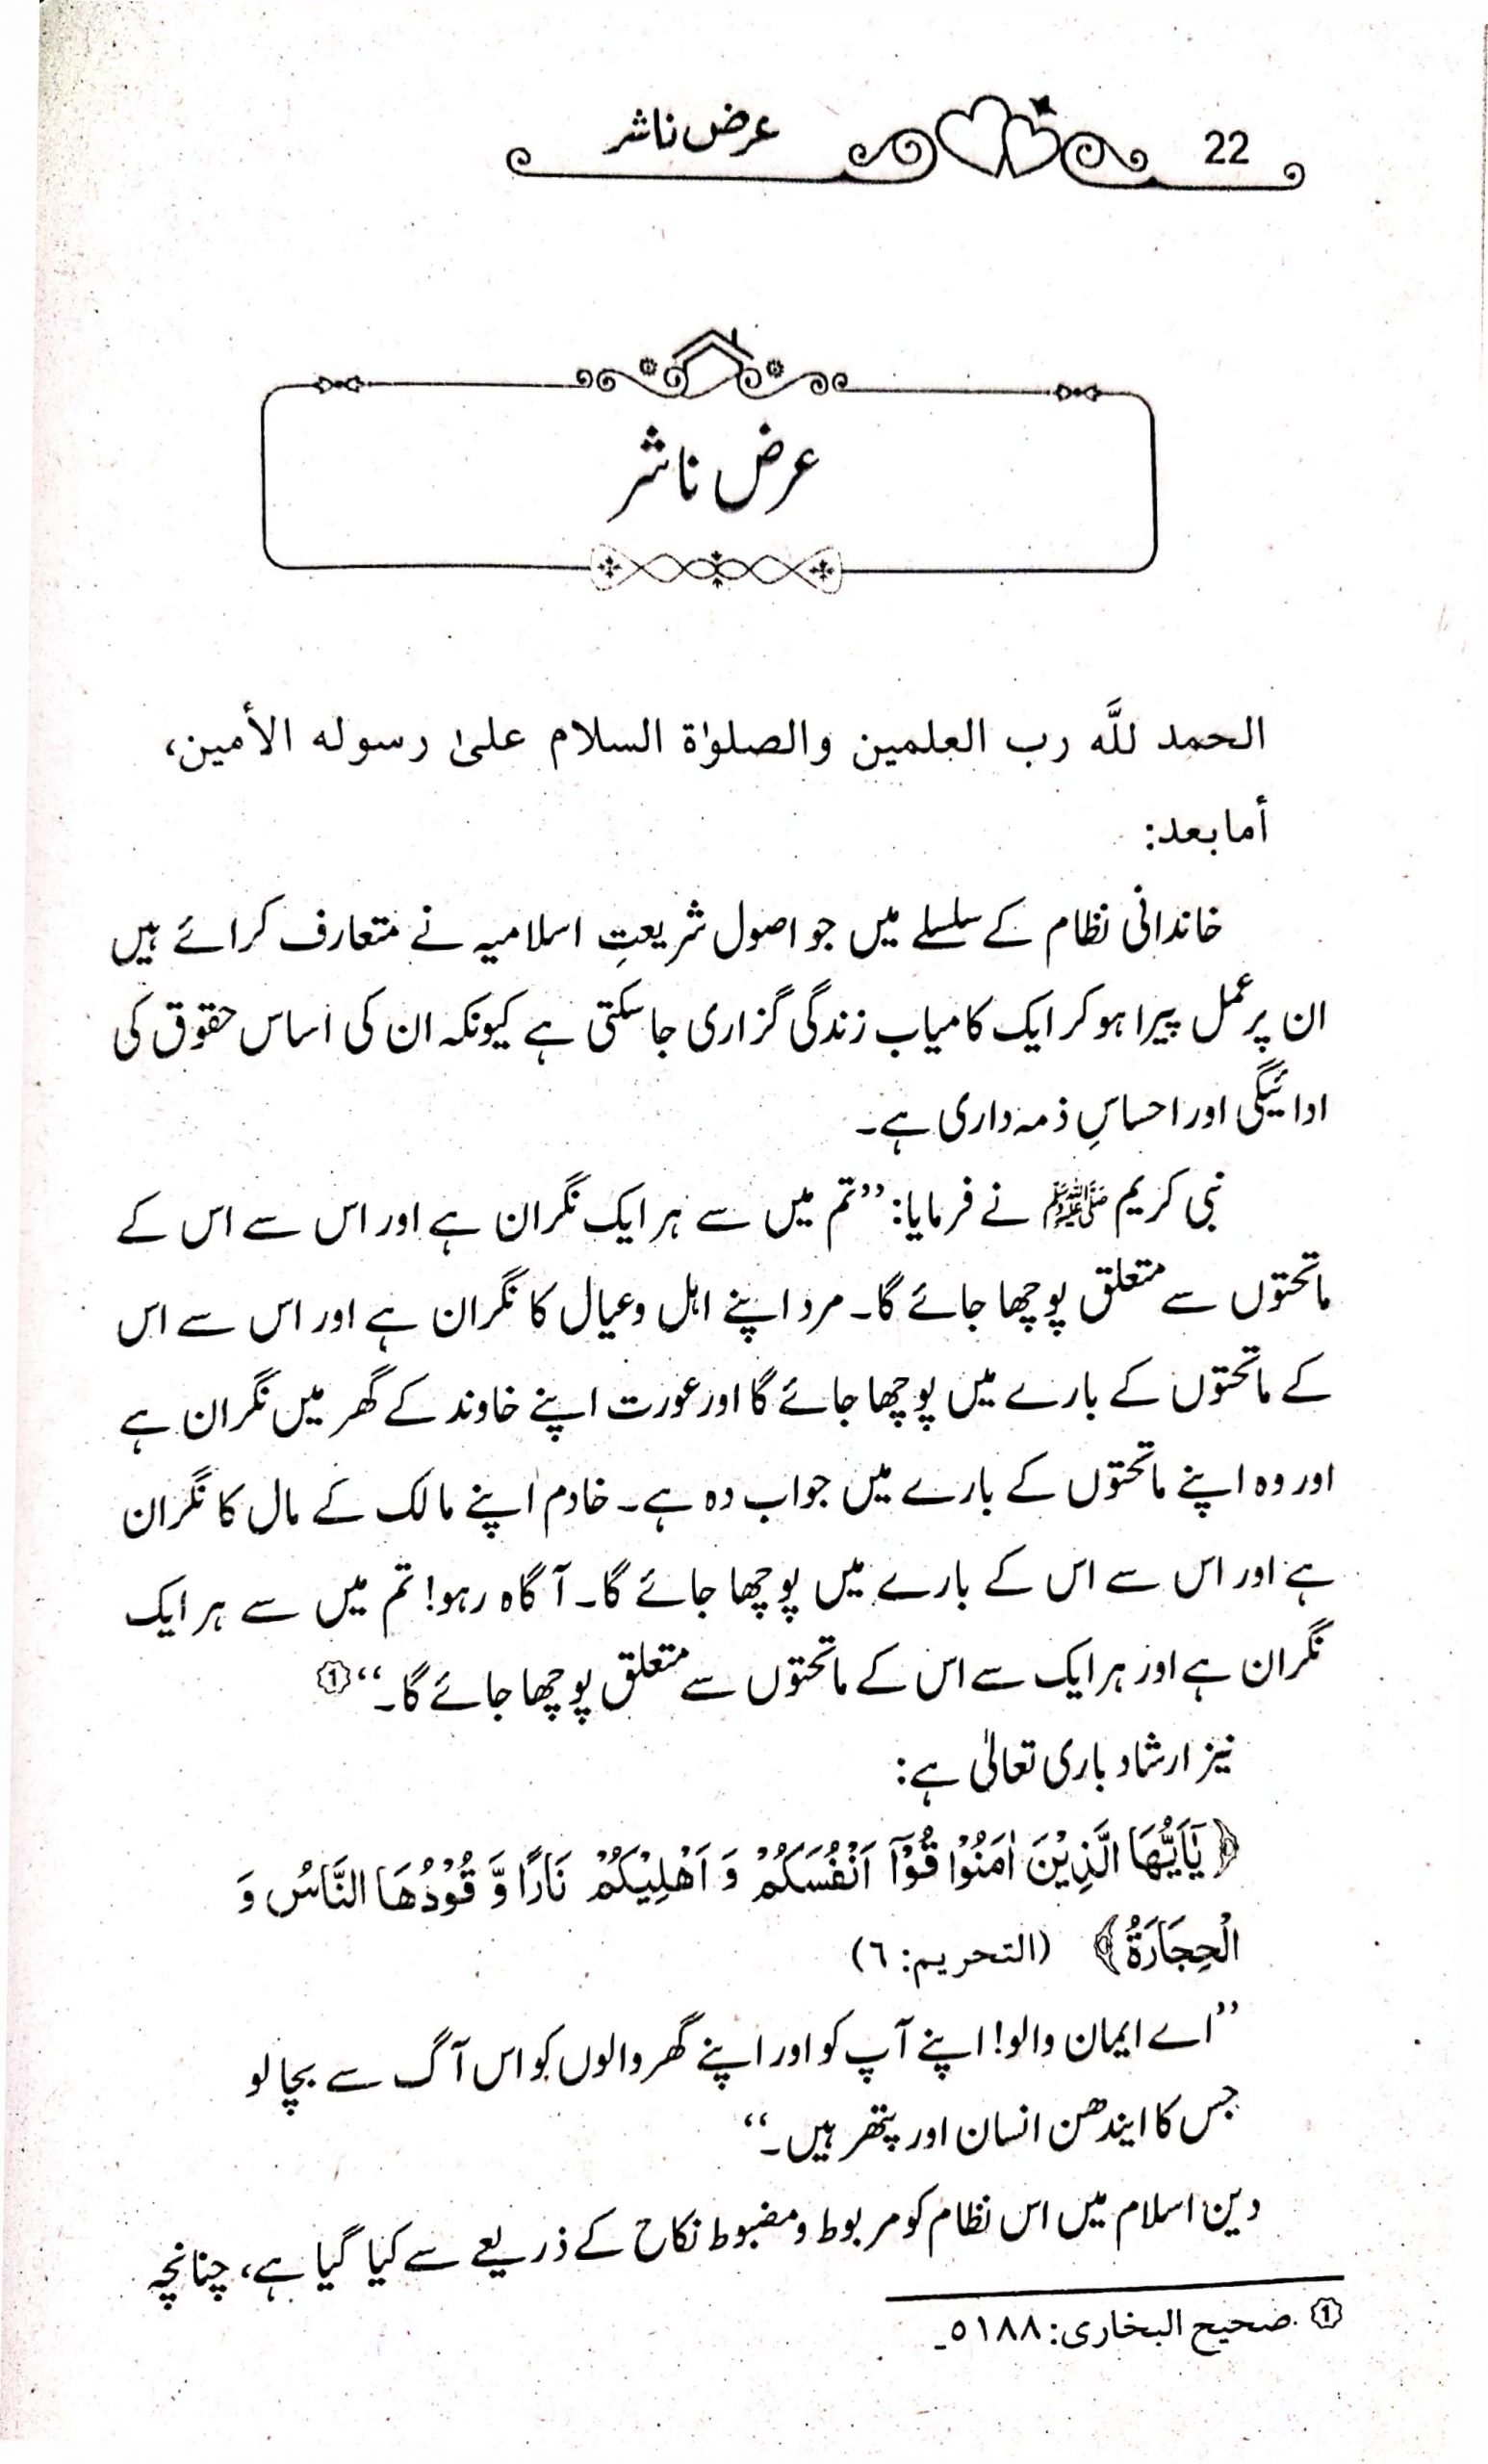 22 عرض ناشر
عرض ناشر
الحمد للَّه رب العلمين والصلوٰة السلام علىٰ رسوله الأمين،
أما بعد:
خاندانی نظام کے سلسلے میں جو اصول شریعتِ اسلامیہ نے متعارف کرائے ہیں
ان پر عمل پیرا ہو کر ایک کامیاب زندگی گزاری جا سکتی ہے کیونکہ ان کی اساس حقوق کی
ادائیگی اور احساسِ ذمہ داری ہے۔
نبی کریم ﷺ نے فرمایا: ’’تم میں سے ہر ایک نگران ہے اور اس سے اس کے
ماتحتوں سے متعلق پوچھا جائے گا۔ مرد اپنے اہل و عیال کا نگران ہے اور اس سے اس
کے ماتحتوں کے بارے میں پوچھا جائے گا اور عورت اپنے خاوند کے گھر میں نگران ہے
اور وہ اپنے ماتحتوں کے بارے میں جواب دہ ہے۔ خادم اپنے مالک کے مال کا نگران
ہے اور اس سے اس کے بارے میں پوچھا جائے گا۔ آگاہ رہو! تم میں سے ہر ایک
نگران ہے اور ہر ایک سے اس کے ماتحتوں سے متعلق پوچھا جائے گا۔‘‘ ①
نیز ارشاد باری تعالیٰ ہے:
﴿يٰۤاَيُّهَا الَّذِيْنَ اٰمَنُوْا قُوْۤا اَنْفُسَكُمْ وَ اَهْلِيْكُمْ نَارًا وَّ قُوْدُهَا النَّاسُ وَ
الْحِجَارَةُ﴾ (التحريم: ٦)
’’اے ایمان والو! اپنے آپ کو اور اپنے گھر والوں کو اس آگ سے بچا لو
جس کا ایندھن انسان اور پتھر ہیں۔‘‘
دین اسلام میں اس نظام کو مربوط و مضبوط نکاح کے ذریعے سے کیا گیا ہے، چنانچہ
① صحیح البخاری: ٥١٨٨۔